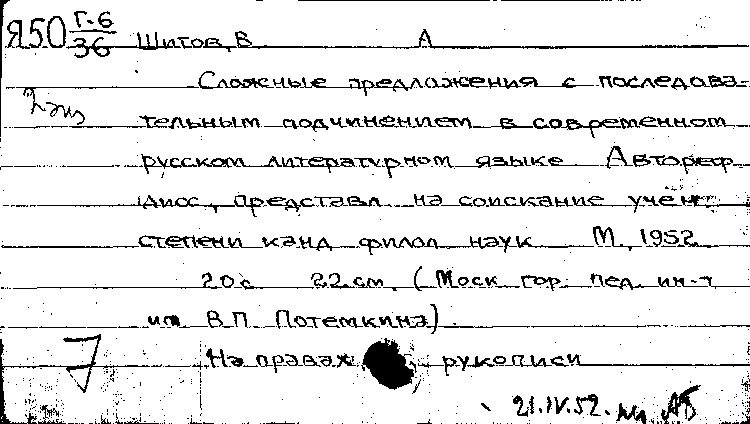 Я50 Г-6/36 Шитов, В А
Сложные предложения с последова-
2 экз
тельным подчинением в современном
русском литературном языке Автореф
дисс., представл на соискание учён
степени канд филол наук М., 1952
20 с 22 см. (Моск гор. пед. ин-т
им В.П. Потемкина)
7 На правах рукописи
21.IV.52.